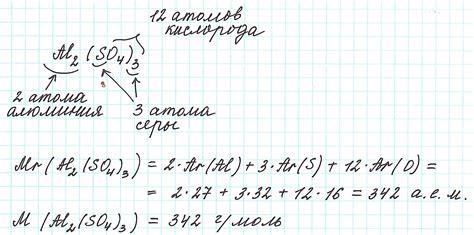 12 атомов
кислорода
Al₂(SO₄)₃
2 атома
алюминия
3 атома
серы
Mr(Al₂(SO₄)₃) = 2·Ar(Al) + 3·Ar(S) + 12·Ar(O) =
= 2·27 + 3·32 + 12·16 = 342 а.е.м.
M(Al₂(SO₄)₃) = 342 г/моль